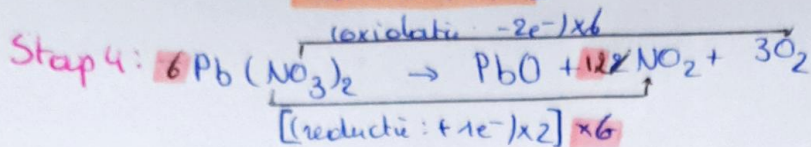 (oxidatie: -2e⁻)×6
Stap 4: 6 Pb(NO₃)₂ → PbO + 12 NO₂ + 3O₂
[(reductie: +1e⁻)×2] ×6